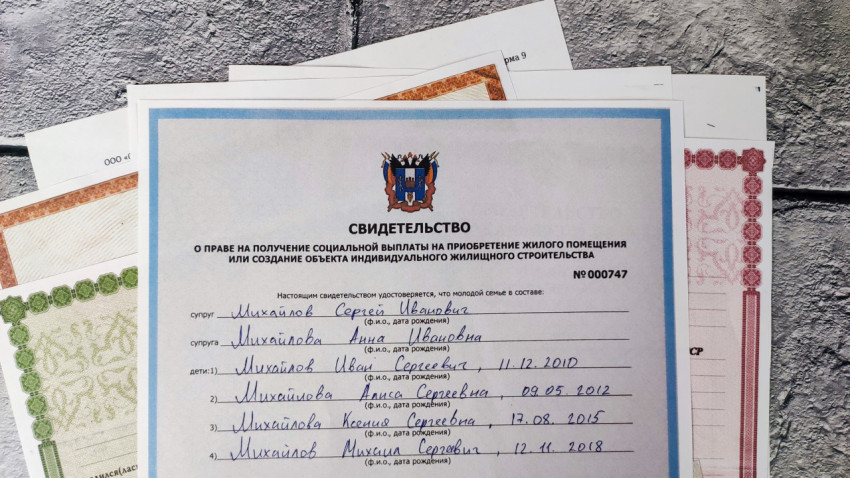 рма 9
ООО «
СВИДЕТЕЛЬСТВО
О ПРАВЕ НА ПОЛУЧЕНИЕ СОЦИАЛЬНОЙ ВЫПЛАТЫ НА ПРИОБРЕТЕНИЕ ЖИЛОГО ПОМЕЩЕНИЯ
ИЛИ СОЗДАНИЕ ОБЪЕКТА ИНДИВИДУАЛЬНОГО ЖИЛИЩНОГО СТРОИТЕЛЬСТВА
№ 000747
Настоящим свидетельством удостоверяется, что молодой семье в составе:
супруг Михайлов Сергей Иванович
(ф.и.о., дата рождения)
супруга Михайлова Анна Ивановна
(ф.и.о., дата рождения)
дети:1) Михайлов Иван Сергеевич, 11.12.2010
(ф.и.о., дата рождения)
2) Михайлова Алиса Сергеевна, 09.05.2012
(ф.и.о., дата рождения)
3) Михайлова Ксения Сергеевна, 17.08.2015
(ф.и.о., дата рождения)
4) Михайлов Михаил Сергеевич, 12.11.2018
(ф.и.о., дата рождения)
СР
одился(лась